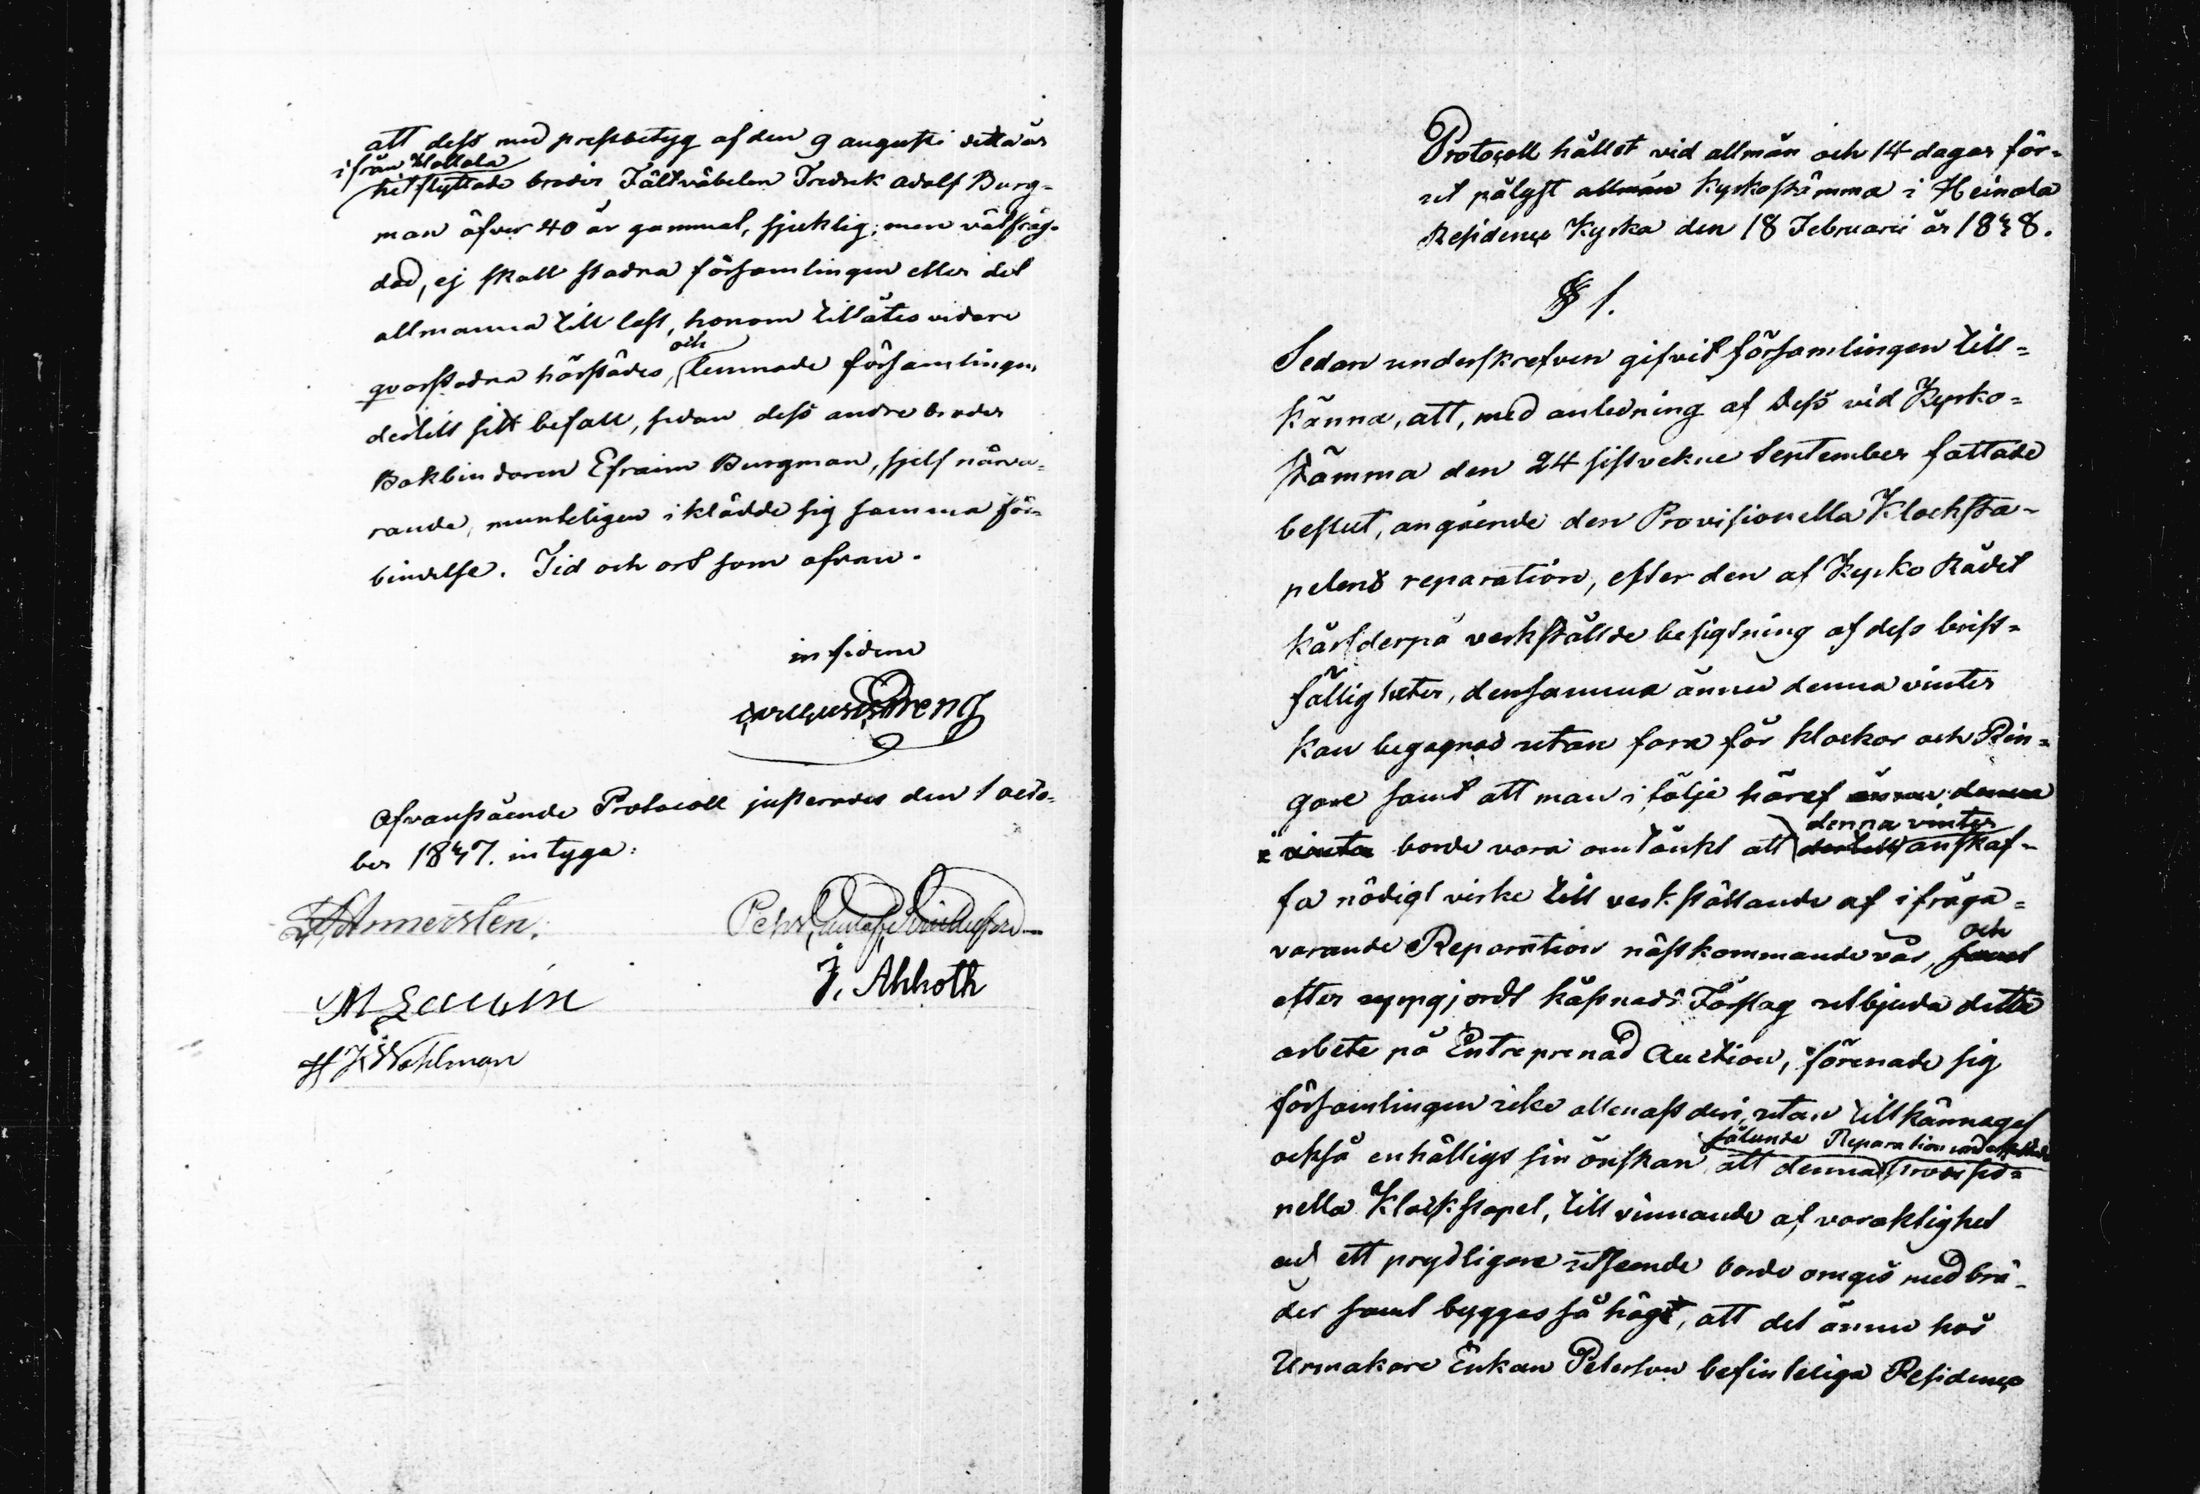 att dess med prestbetyg af den 9 augusti detta år
ifrån Hollola
hitflyttade broder Fältväbelen Fredrik Adolf Burg-
man öfver 40 år gammal, sjuklig, men välfräg-
dad, ej skall stadna församlingen eller det
allmänna till last, honom tillåtes vidare
och
qvarstadna härstädes, lemnade församlingen
dertill sitt bifall, sedan dess andre broder
Bokbindaren Efraim Burgman, sjelf närva-
rande, munteligen iklädde sig samma för-
bindelse. Tid och ort som ofvan.
in fidem
Ofvanstående Protocoll justerades den 1 octo-
ber 1847. intyga:
Pehr Gustaf
J. Ahlroth
H J Wahlman
Protocoll hållet vid allmän och 14 dagar för-
ut pålyst allmän Kyrkostämma i Heinola
Residence Kyrka den 18 Februarii år 1848.
§ 1.
Sedan underskrefven gifvit församlingen till-
känna, att, med anledning af dess vid Kyrko-
stämma den 24 sistvekne September fattade
beslut, angående den Provisionella Klocksta-
pelens reparation, efter den af Kyrko Rådet
kårt derpå verkställde besigtning af dess brist-
fälligheter, densamma ännu denna vinter
kan begagnas utan fara för klockor och Rin-
gare samt att man i följe häraf ännu denna
denna vinter
i vinter borde vara omtänkt att dertill anskaf-
fa nödigt virke till verkställande af ifråga-
och
varande Reparation nästkommande vår, samt
efter uppgjordt kåstnads Förslag utbjuda detta
arbete på Entreprenad Auction, förenade sig
församlingen icke allenast deri, utan tillkännagaf
sålunde Reparation underkastade
också enhälligt sin önskan att denna Provisio-
nella Klockstapel, till vinnande af varaktighet
och ett prydligare utseende borde omges med brä-
der samt bygges så högt, att det ännu hos
Urmakare Enkan Peterson befinteliga Residence